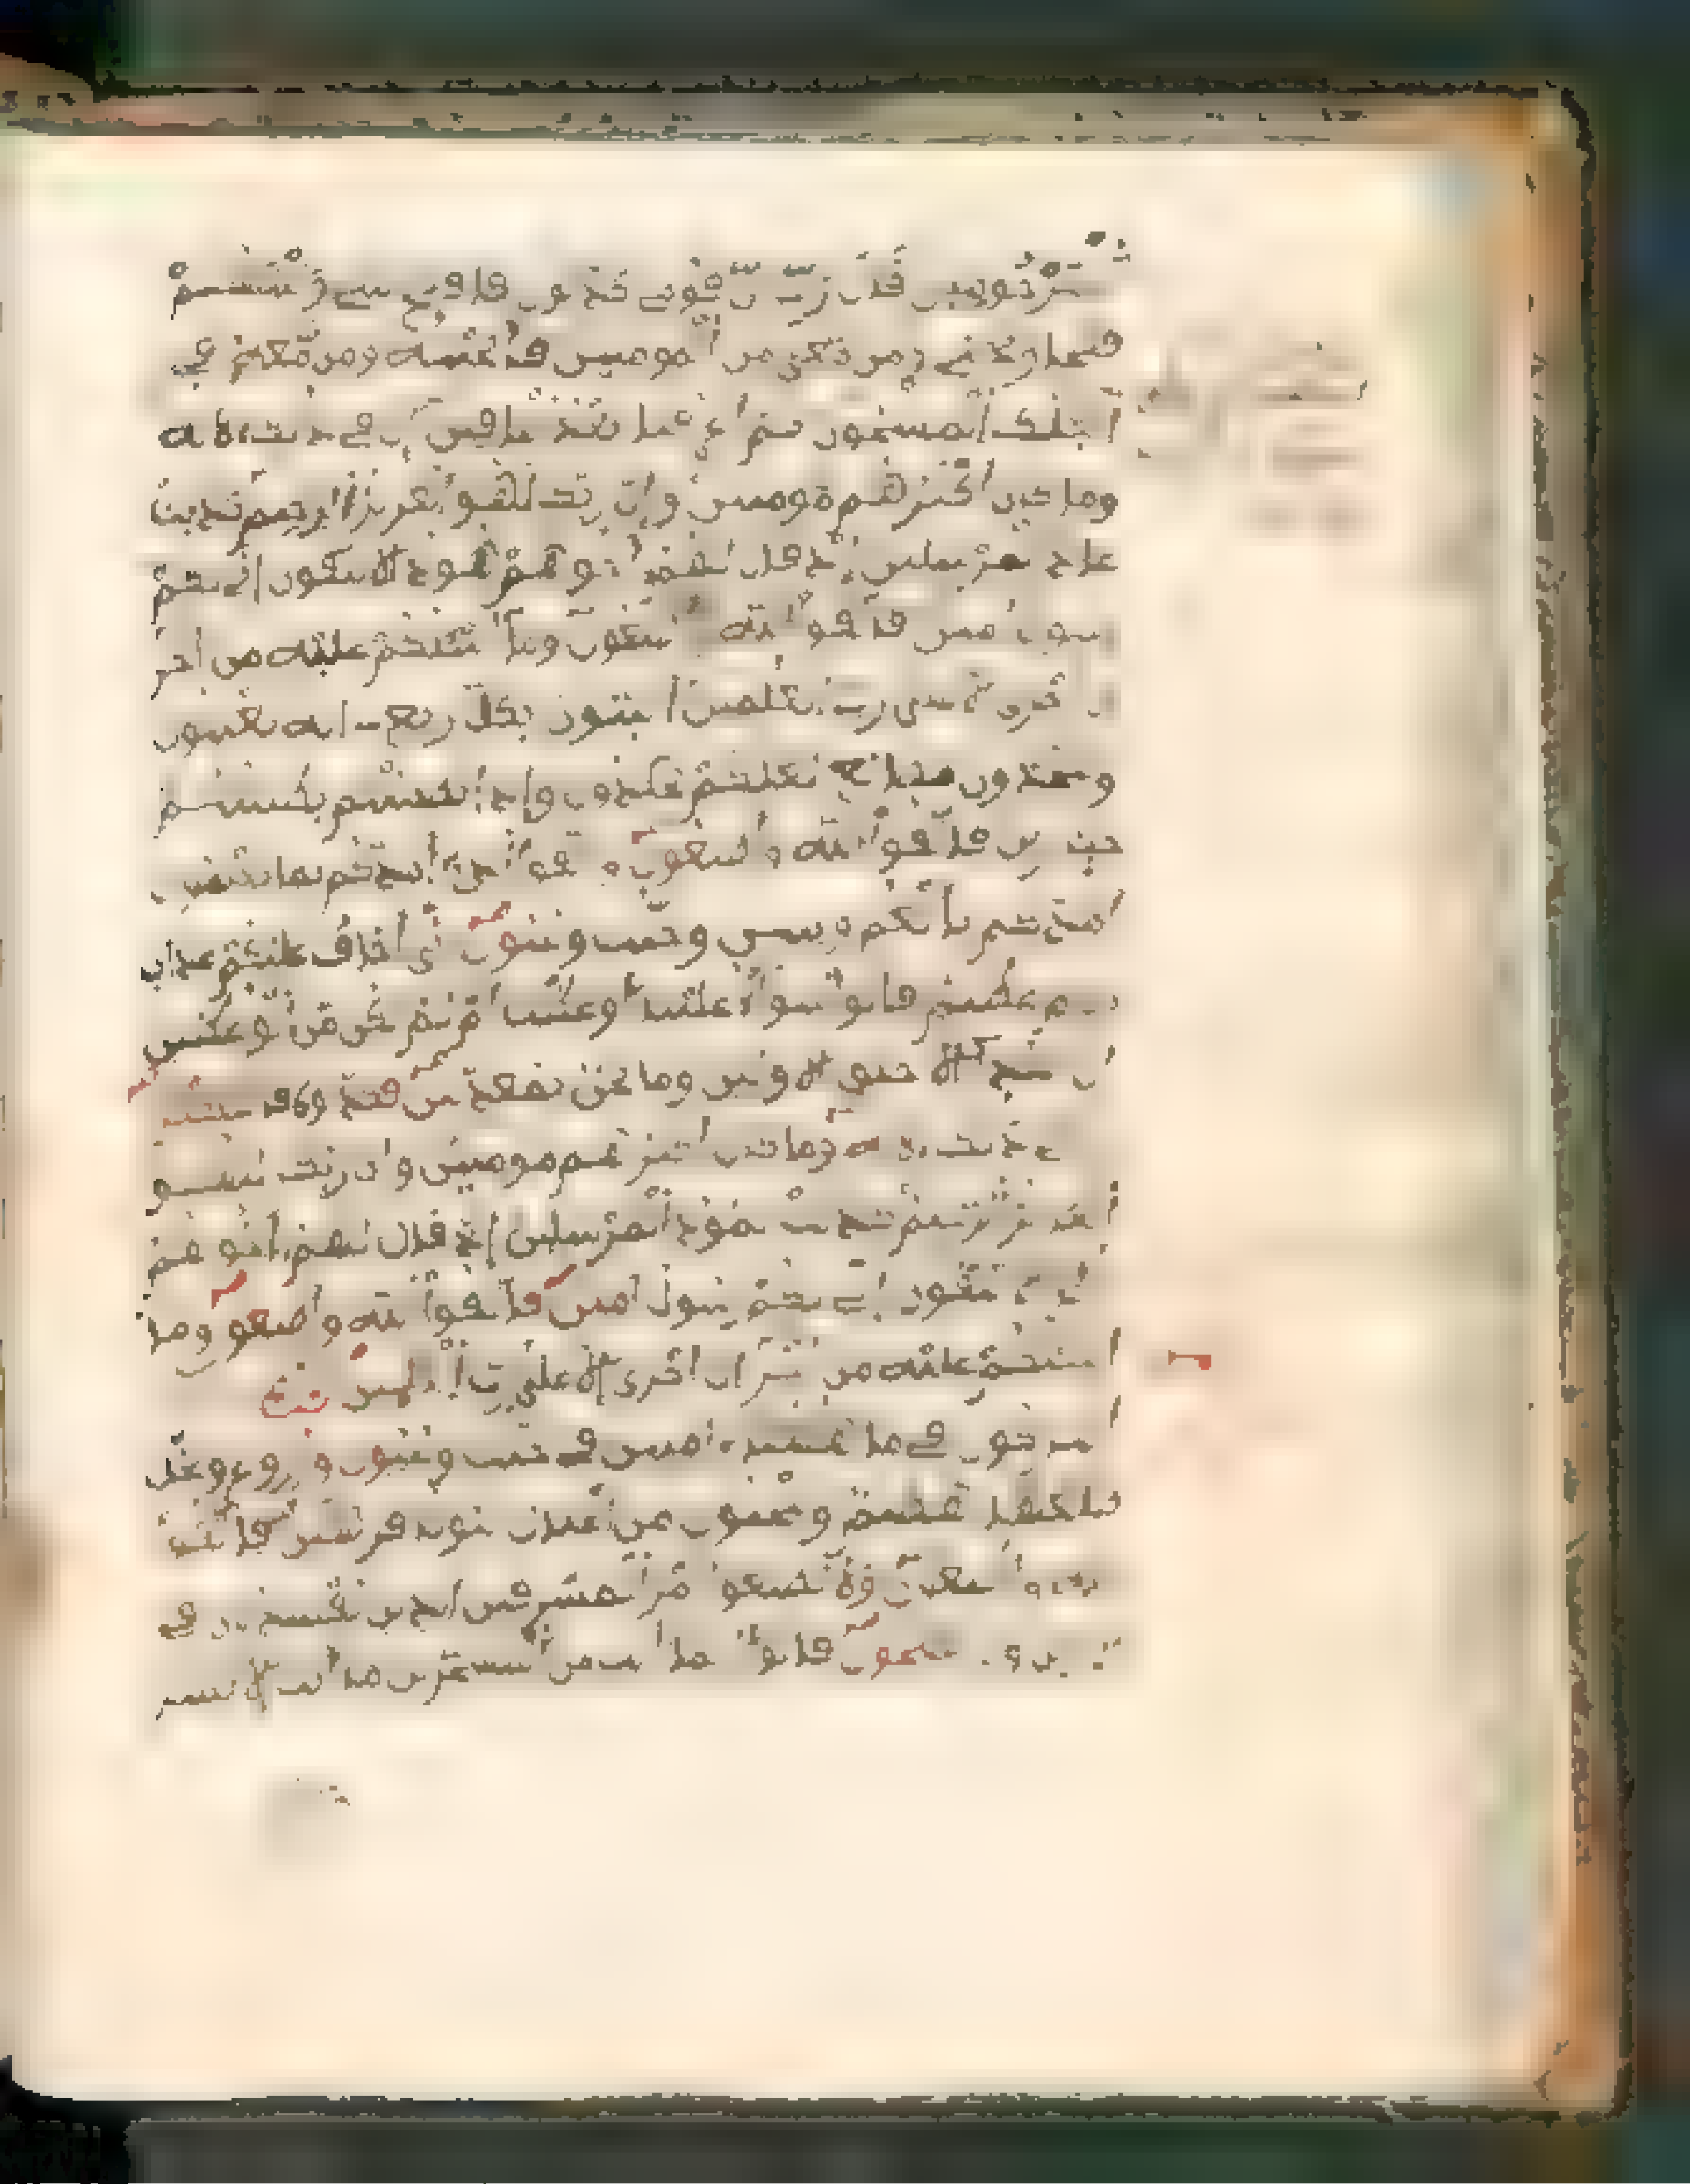 المرجومين قال رب إن قومي كذبون فافتح بيني وبينهم
فتحا ونجني ومن معي من المومنين فأنجينه ومن معه في
الفلك المشحون ثم أغرقنا بعد الباقين إن في ذلك لأية
وما كان أكثرهم مومنين وإن ربك لهو العزيز الرحيم كذبت
عاد المرسلين إذ قال لهم أخوهم هود ألا تتقون إني لكم
رسول أمين فاتقوا الله وأطيعون وما أسئلكم عليه من أجر
إن أجري إلا على رب العلمين أتبنون بكل ريع ءاية تعبثون
وتتخذون مصانع لعلكم تخلدون وإذا بطشتم بطشتم
جبارين فاتقوا الله وأطيعون واتقوا الذي أمدكم بما تعلمون
أمدكم بأنعم وبنين وجنت وعيون إني أخاف عليكم عذاب
يوم عظيم قالوا سواء علينا أوعظت أم لم تكن من الوعظين
إن هذا إلا خلق الأولين وما نحن بمعذبين فكذبوه فأهلكنهم
إن في ذلك لأية وما كان أكثرهم مومنين وإن ربك لهو
العزيز الرحيم كذبت ثمود المرسلين إذ قال لهم أخوهم
صلح ألا تتقون إني لكم رسول أمين فاتقوا الله وأطيعون وما
أسئلكم عليه من أجر إن أجري إلا على رب العلمين
أتتركون في ما ههنا ءامنين في جنت وعيون وزروع ونخل
طلعها هضيم وتنحتون من الجبال بيوتا فرهين فاتقوا
الله وأطيعون ولا تطيعوا أمر المسرفين الذين يفسدون في
الأرض ولا يصلحون قالوا إنما أنت من المسحرين ما أنت إلا بشر